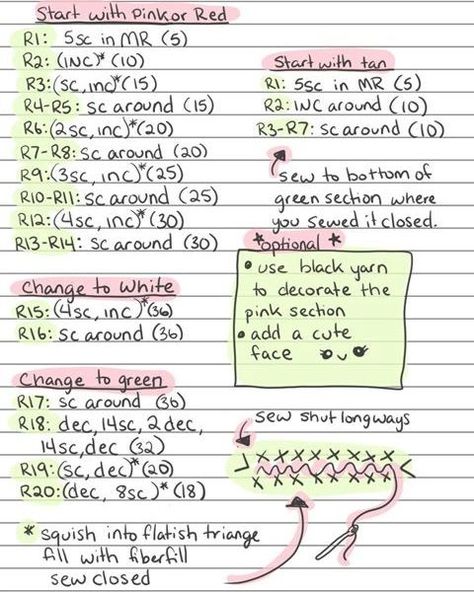 Start with Pink or Red
R1: 5sc in MR (5)
R2: (INC)* (10)
R3: (sc, inc)* (15)
R4-R5: sc around (15)
R6: (2sc, inc)* (20)
R7-R8: sc around (20)
R9: (3sc, inc)* (25)
R10-R11: sc around (25)
R12: (4sc, inc)* (30)
R13-R14: sc around (30)
Change to White
R15: (4sc, inc)* (36)
R16: sc around (36)
Change to green
R17: sc around (36)
R18: dec, 14sc, 2 dec,
14sc, dec (32)
R19: (sc, dec)* (20)
R20: (dec, 8sc)* (18)
* squish into flatish triange
fill with fiberfill
sew closed
Start with tan
R1: 5sc in MR (5)
R2: INC around (10)
R3-R7: sc around (10)
sew to bottom of
green section where
you sewed it closed.
*optional *
• use black yarn
to decorate the
pink section
• add a cute
face
sew shut longways